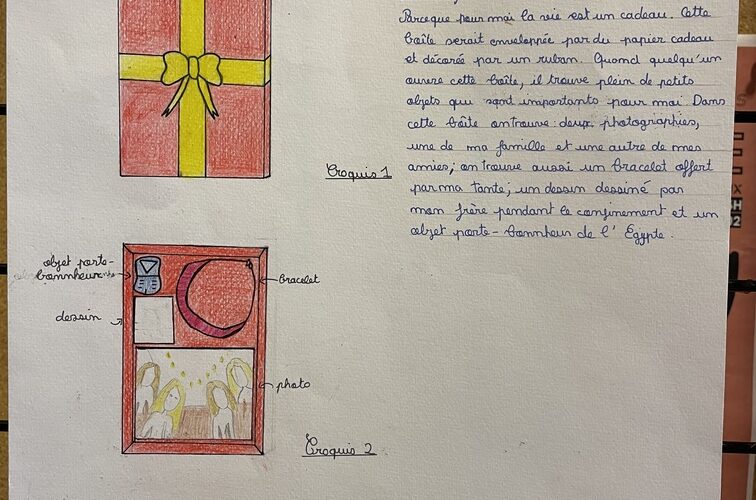 Parceque pour moi la vie est un cadeau. Cette
boîte serait enveloppée par du papier cadeau
et décorée par un ruban. Quand quelqu'un
ouvre cette boîte, il trouve plein de petits
objets qui sont importants pour moi. Dans
cette boîte on trouve: deux photographies,
une de ma famille et une autre de mes
amies; on trouve aussi un bracelet offert
par ma tante; un dessin dessiné par
mon frère pendant le confinement et un
objet porte-bonnheur de l'Egypte.
Croquis 1
objet porte-
bonnheur
bracelet
dessin
photo
Croquis 2